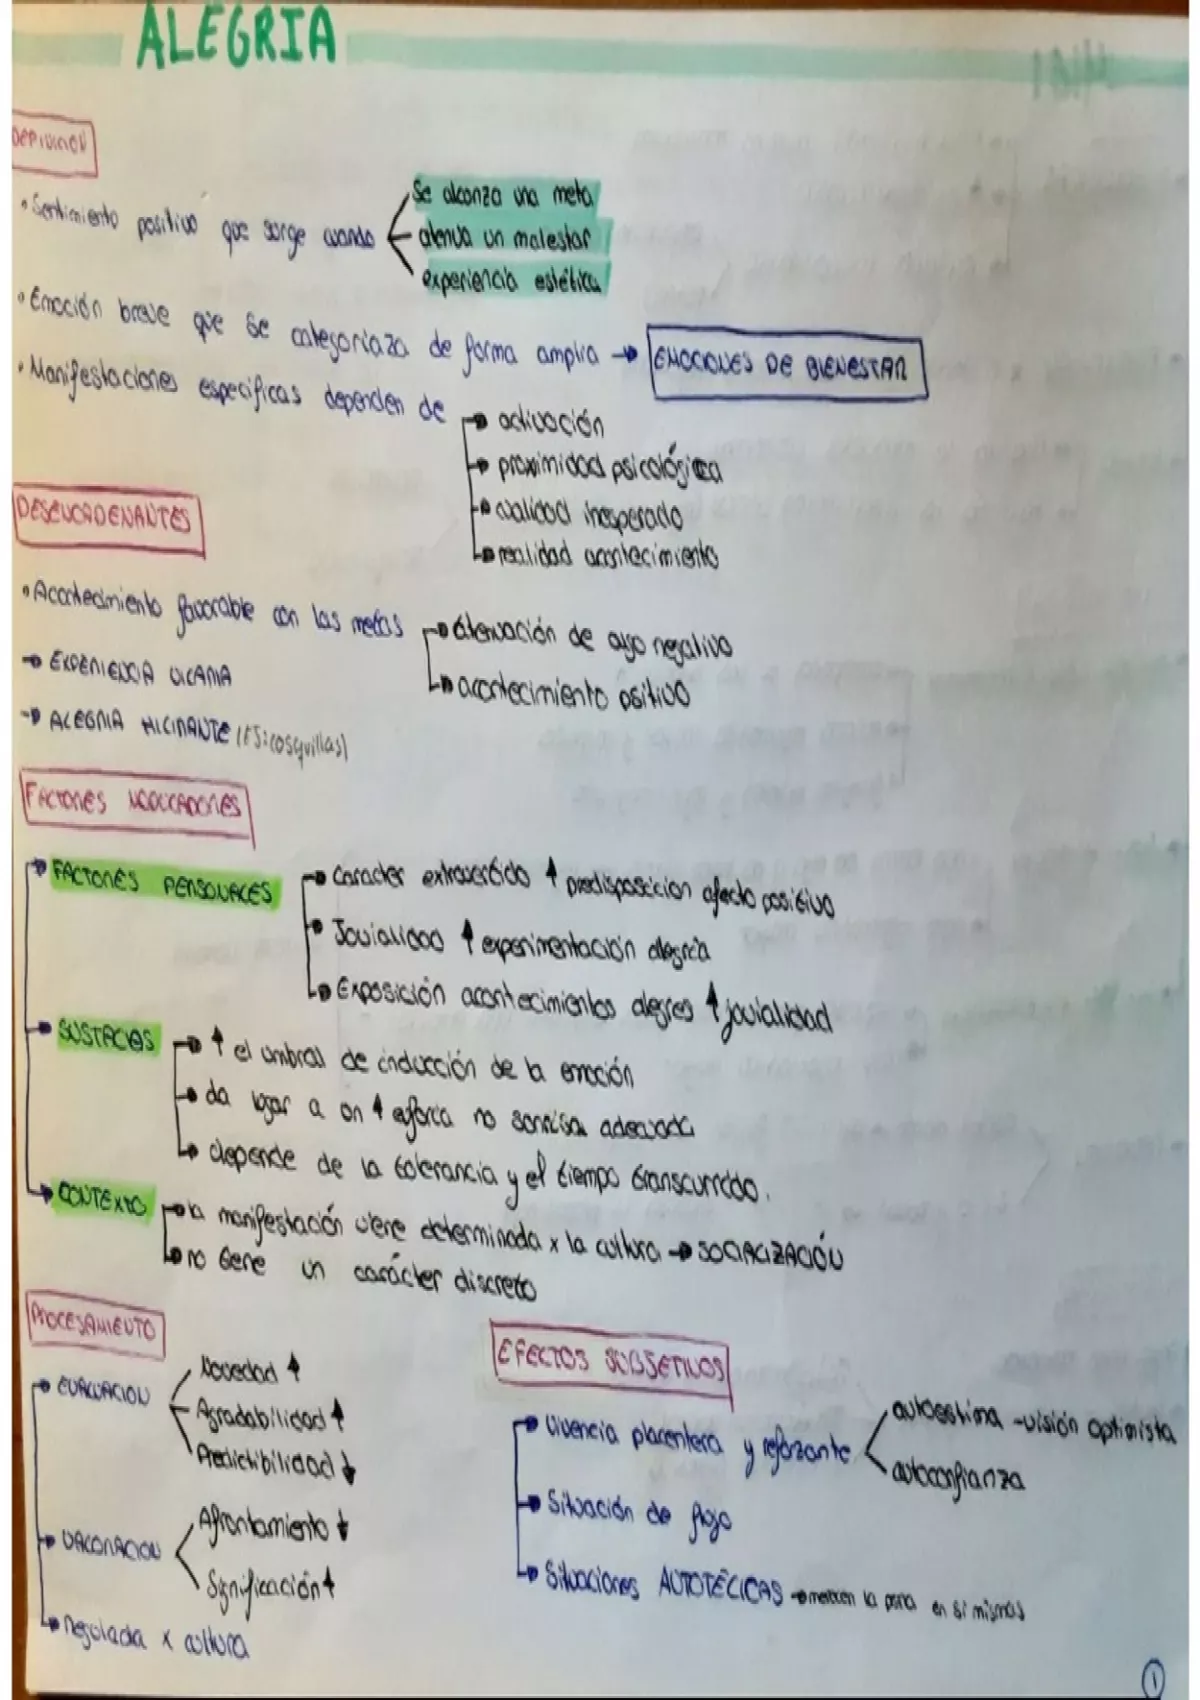 ALEGRIA
DEFINICIÓN
• Sentimiento positivo que surge cuando
Se alcanza una meta
atenua un malestar
experiencia estética
• Emoción breve que se categoriaza de forma amplia → EMOCIONES DE BIENESTAR
• Manifestaciones especificas dependen de
→ activación
→ proximidad psicológica
→ cualidad inesperado
→ realidad acontecimiento
DESENCADENANTES
• Acontecimiento favorable con las metas
→ atenuación de algo negativo
→ acontecimiento positivo
→ EXPERIENCIA VICARIA
→ ALEGRIA ALUCINANTE (EJ: cosquillas)
FACTORES MODULADORES
→ FACTORES PERSONALES
→ Caracter extravertido ↑ predisposicion afecto positivo
→ Jovialidad ↑ experimentación alegria
→ Exposición acontecimientos alegres ↑ jovialidad
→ SUSTACIAS
→ ↑ el umbral de inducción de la emoción
→ da lugar a un ↑ euforia no sonrisa adecuada
→ depende de la tolerancia y el tiempo transcurrido.
→ CONTEXTO
→ la manifestación viene determinada x la cultura → SOCIALIZACIÓN
→ no tiene un carácter discreto
PROCESAMIENTO
→ EVALUACION
Novedad ↑
Agradabilidad ↑
Predictibilidad ↓
→ VALORACION
Afrontamiento ↓
Significación ↑
→ Regulada x cultura
EFECTOS SUBJETIVOS
→ Vivencia placentera y reforzante
autoestima - visión optimista
autoconfianza
→ Situación de flujo
→ Situaciones AUTOTÉLICAS → merecen la pena en si mismas
1